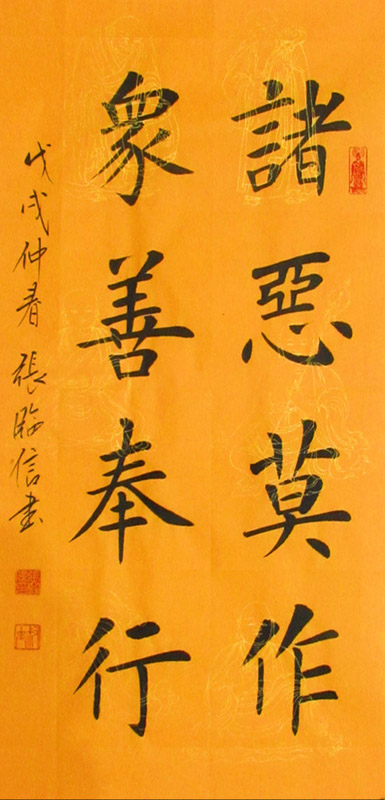 諸惡莫作
衆善奉行
戊戌仲春 張臨信書